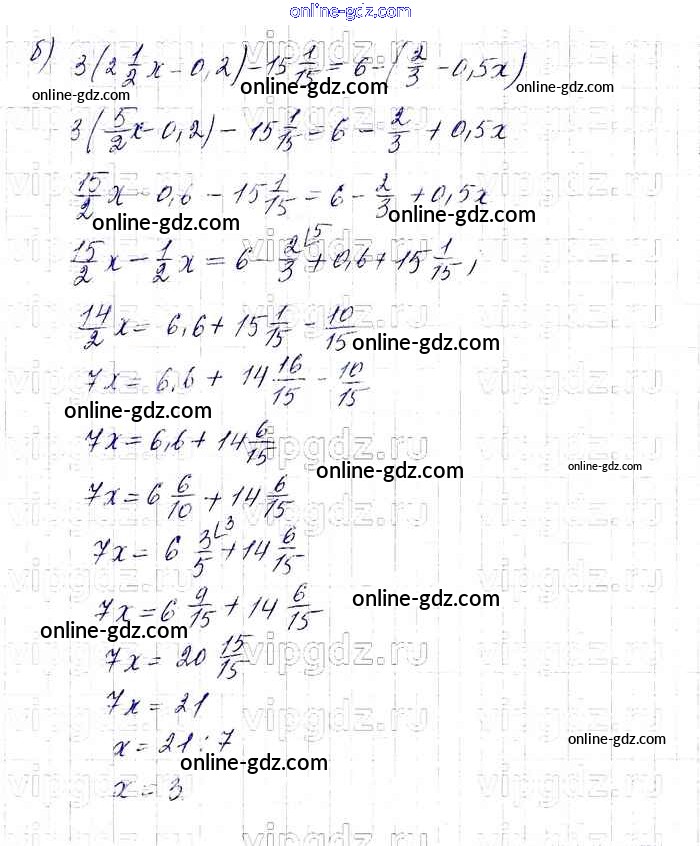 online-gdz.com
б) 3(2 1/2 x - 0,2) - 15 1/15 = 6 - (2/3 - 0,5x)
online-gdz.com online-gdz.com online-gdz.com
3(5/2 x - 0,2) - 15 1/15 = 6 - 2/3 + 0,5x
15/2 x - 0,6 - 15 1/15 = 6 - 2/3 + 0,5x
online-gdz.com online-gdz.com
15/2 x - 1/2 x = 6 - 2/3 ⌊5 + 0,6 + 15 1/15 ;
14/2 x = 6,6 + 15 1/15 - 10/15
online-gdz.com
7x = 6,6 + 14 16/15 - 10/15
online-gdz.com
7x = 6,6 + 14 6/15
online-gdz.com online-gdz.com
7x = 6 6/10 + 14 6/15
7x = 6 3/5 ⌊3 + 14 6/15
7x = 6 9/15 + 14 6/15
online-gdz.com
online-gdz.com
7x = 20 15/15
7x = 21
x = 21 : 7
online-gdz.com
online-gdz.com
x = 3
vipgdz.ru